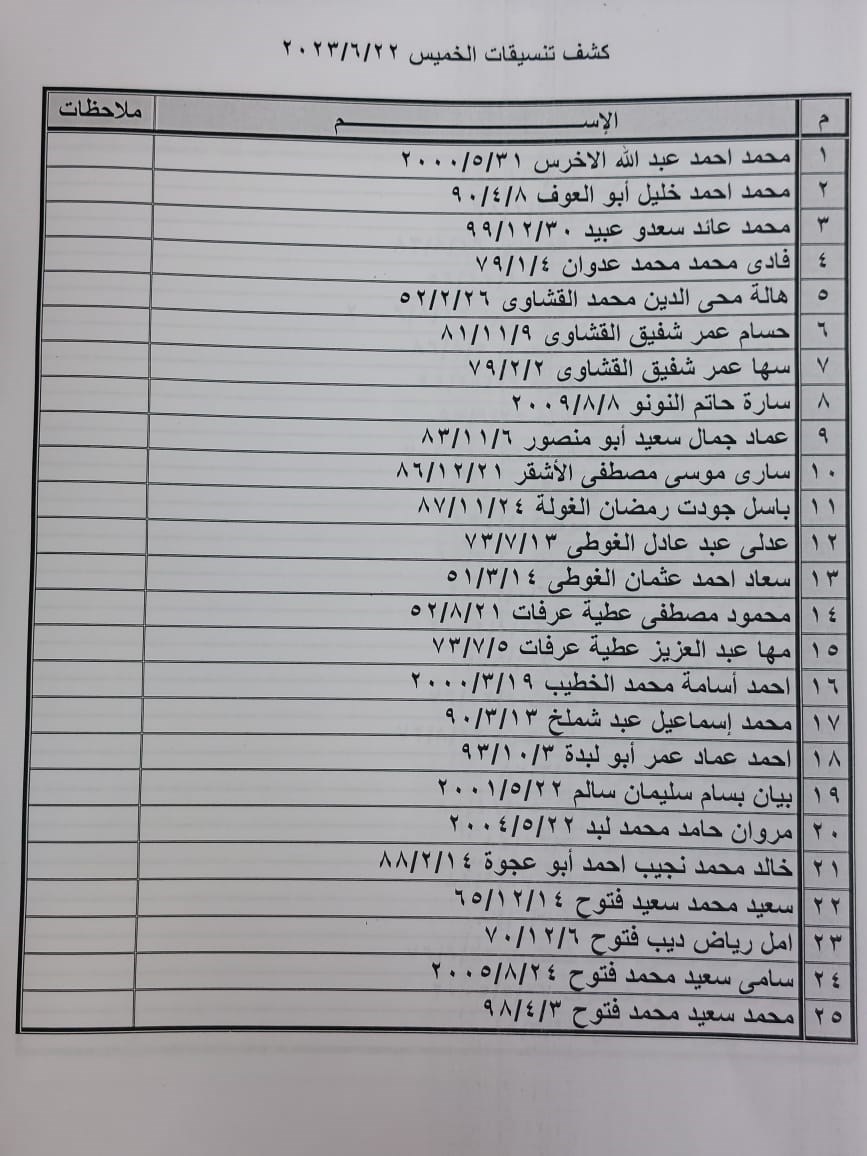 كشف تنسيقات الخميس ٢٠٢٣/٦/٢٢
م الإســــــــــم ملاحظات
١ محمد احمد عبد الله الاخرس ٢٠٠٠/٥/٣١
٢ محمد احمد خليل أبو العوف ٩٠/٤/٨
٣ محمد عائد سعدو عبيد ٩٩/١٢/٣٠
٤ فادى محمد محمد عدوان ٧٩/١/٤
٥ هالة محى الدين محمد القشاوى ٥٢/٢/٢٦
٦ حسام عمر شفيق القشاوى ٨١/١١/٩
٧ سها عمر شفيق القشاوى ٧٩/٢/٢
٨ سارة حاتم النونو ٢٠٠٩/٨/٨
٩ عماد جمال سعيد أبو منصور ٨٣/١١/٦
١٠ سارى موسى مصطفى الأشقر ٨٦/١٢/٢١
١١ باسل جودت رمضان الغولة ٨٧/١١/٢٤
١٢ عدلى عبد عادل الغوطى ٧٣/٧/١٣
١٣ سعاد احمد عثمان الغوطى ٥١/٣/١٤
١٤ محمود مصطفى عطية عرفات ٥٢/٨/٢١
١٥ مها عبد العزيز عطية عرفات ٧٣/٧/٥
١٦ احمد أسامة محمد الخطيب ٢٠٠٠/٣/١٩
١٧ محمد إسماعيل عبد شملخ ٩٠/٣/١٣
١٨ احمد عماد عمر أبو لبدة ٩٣/١٠/٣
١٩ بيان بسام سليمان سالم ٢٠٠١/٥/٢٢
٢٠ مروان حامد محمد لبد ٢٠٠٤/٥/٢٢
٢١ خالد محمد نجيب احمد أبو عجوة ٨٨/٢/١٤
٢٢ سعيد محمد سعيد فتوح ٦٥/١٢/١٤
٢٣ امل رياض ديب فتوح ٧٠/١٢/٦
٢٤ سامى سعيد محمد فتوح ٢٠٠٥/٨/٢٤
٢٥ محمد سعيد محمد فتوح ٩٨/٤/٣